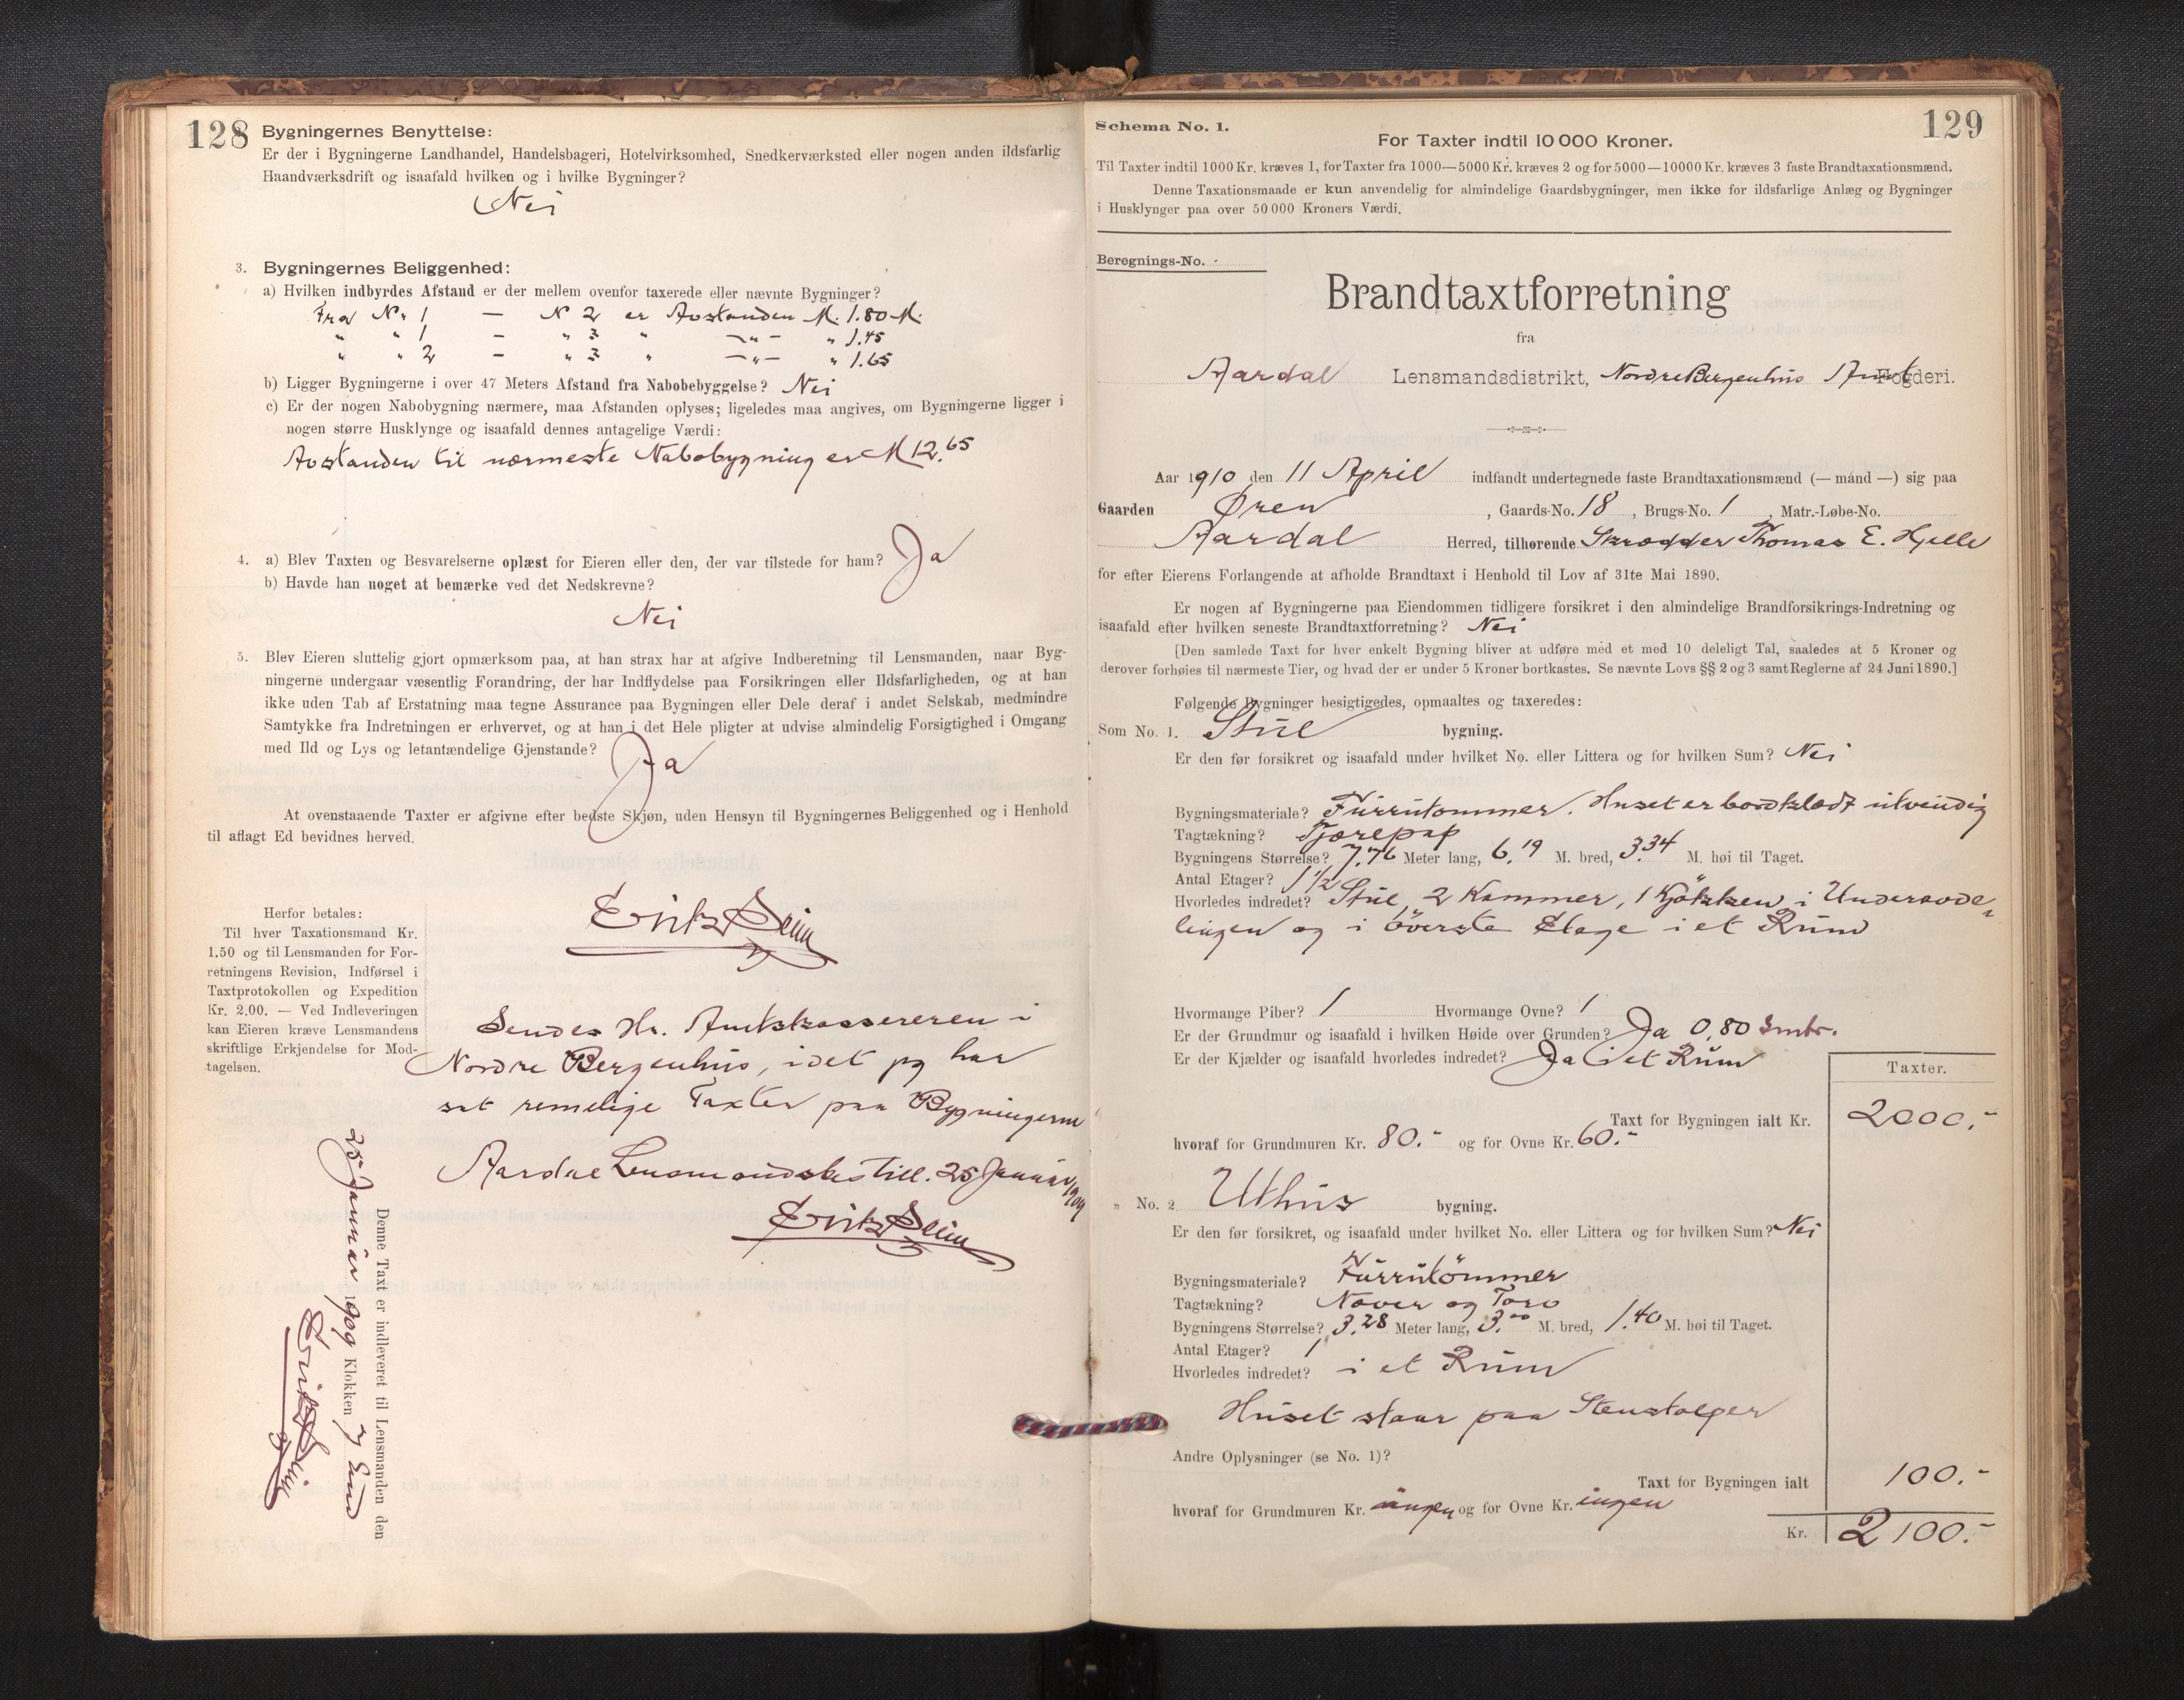 128
Bygningernes Benyttelse:
Er der i Bygningerne Landhandel, Handelsbageri, Hotelvirksomhed, Snedkerværksted eller nogen anden ildsfarlig
Haandværksdrift og isaafald hvilken og i hvilke Bygninger?
Nei
3. Bygningernes Beliggenhed:
a) Hvilken indbyrdes Afstand er der mellem ovenfor taxerede eller nævnte Bygninger?
Fra No 1 — N 2 er Avstanden M. 1.80 M.
" " 1 - " 3 " —"— " 1.45
" " 2 - " 3 " —"— " 1.65
b) Ligger Bygningerne i over 47 Meters Afstand fra Nabobebyggelse? Nei
c) Er der nogen Nabobygning nærmere, maa Afstanden oplyses; ligeledes maa angives, om Bygningerne ligger i
nogen større Husklynge og isaafald dennes antagelige Værdi:
Avstanden til nærmeste Nabobygning er M 12.65
4. a) Blev Taxten og Besvarelserne oplæst for Eieren eller den, der var tilstede for ham? Ja
b) Havde han noget at bemærke ved det Nedskrevne?
Nei
5. Blev Eieren sluttelig gjort opmærksom paa, at han strax har at afgive Indberetning til Lensmanden, naar Byg-
ningerne undergaar væsentlig Forandring, der har Indflydelse paa Forsikringen eller Ildsfarligheden, og at han
ikke uden Tab af Erstatning maa tegne Assurance paa Bygningen eller Dele deraf i andet Selskab, medmindre
Samtykke fra Indretningen er erhvervet, og at han i det Hele pligter at udvise almindelig Forsigtighed i Omgang
med Ild og Lys og letantændelige Gjenstande?
Ja
At ovenstaaende Taxter er afgivne efter bedste Skjøn, uden Hensyn til Bygningernes Beliggenhed og i Henhold
til aflagt Ed bevidnes herved.
Erik Seim
Herfor betales:
Til hver Taxationsmand Kr.
1.50 og til Lensmanden for For-
retningens Revision, Indførsel i
Taxtprotokollen og Expedition
Kr. 2.00. — Ved Indleveringen
kan Eieren kræve Lensmandens
skriftlige Erkjendelse for Mod-
tagelsen.
Sendes Hr. Amtskassereren i
Nordre Bergenhus, idet jeg har
sat rimelige Taxter paa Bygningerne
Aardal Lensmandsbestill. 25 Januar 1909
Erik Seim
Denne Taxt er indleveret til Lensmanden den
25 Januar 1909 Klokken
Erik Seim
Schema No. 1.
129
For Taxter indtil 10 000 Kroner.
Til Taxter indtil 1000 Kr. kræves 1, for Taxter fra 1000—5000 Kr. kræves 2 og for 5000—10000 Kr. kræves 3 faste Brandtaxationsmænd.
Denne Taxationsmaade er kun anvendelig for almindelige Gaardsbygninger, men ikke for ildsfarlige Anlæg og Bygninger
i Husklynger paa over 50 000 Kroners Værdi.
Beregnings-No.
Brandtaxtforretning
fra
Aardal Lensmandsdistrikt, Nordre Bergenhus Amt Fogderi.
Aar 1910 den 11 April indfandt undertegnede faste Brandtaxationsmænd (— mand —) sig paa
Gaarden Øren, Gaards-No. 18, Brugs-No. 1, Matr.-Løbe-No.
Aardal Herred, tilhørende Skrædder Thomas E. Hjelle
for efter Eierens Forlangende at afholde Brandtaxt i Henhold til Lov af 31te Mai 1890.
Er nogen af Bygningerne paa Eiendommen tidligere forsikret i den almindelige Brandforsikrings-Indretning og
isaafald efter hvilken seneste Brandtaxtforretning? Nei
[Den samlede Taxt for hver enkelt Bygning bliver at udføre med et med 10 deleligt Tal, saaledes at 5 Kroner og
derover forhøies til nærmeste Tier, og hvad der er under 5 Kroner bortkastes. Se nævnte Lovs §§ 2 og 3 samt Reglerne af 24 Juni 1890.]
Følgende Bygninger besigtigedes, opmaaltes og taxeredes:
Som No. 1. Stue bygning.
Er den før forsikret og isaafald under hvilket No. eller Littera og for hvilken Sum? Nei
Bygningsmateriale? Furrutømmer. Huset er bordklædt utvendig
Tagtækning? Tjærepap
Bygningens Størrelse? 7.76 Meter lang, 6.19 M. bred, 3.34 M. høi til Taget.
Antal Etager? 1 1/2
Hvorledes indredet? Stue, 2 Kammer, 1 Kjøkken i Underavde-
lingen og i överste Etage i et Rum
Hvormange Piber? 1 Hvormange Ovne? 1
Er der Grundmur og isaafald i hvilken Høide over Grunden? Ja 0,80 Smtr.
Er der Kjælder og isaafald hvorledes indredet? Ja i et Rum
Taxter.
Taxt for Bygningen ialt Kr. 2000.-
hvoraf for Grundmuren Kr. 80.- og for Ovne Kr. 60.-
" No. 2. Uthus bygning.
Er den før forsikret, og isaafald under hvilket No. eller Littera og for hvilken Sum? Nei
Bygningsmateriale? Furrutömmer
Tagtækning? Næver og Torv
Bygningens Størrelse? 3.28 Meter lang, 3.00 M. bred, 1.40 M. høi til Taget.
Antal Etager? 1
Hvorledes indredet? i et Rum
Huset staar paa Stenstolper
Andre Oplysninger (se No. 1)?
Taxt for Bygningen ialt 100.-
hvoraf for Grundmuren Kr. ingen og for Ovne Kr. ingen
Kr. 2100.-